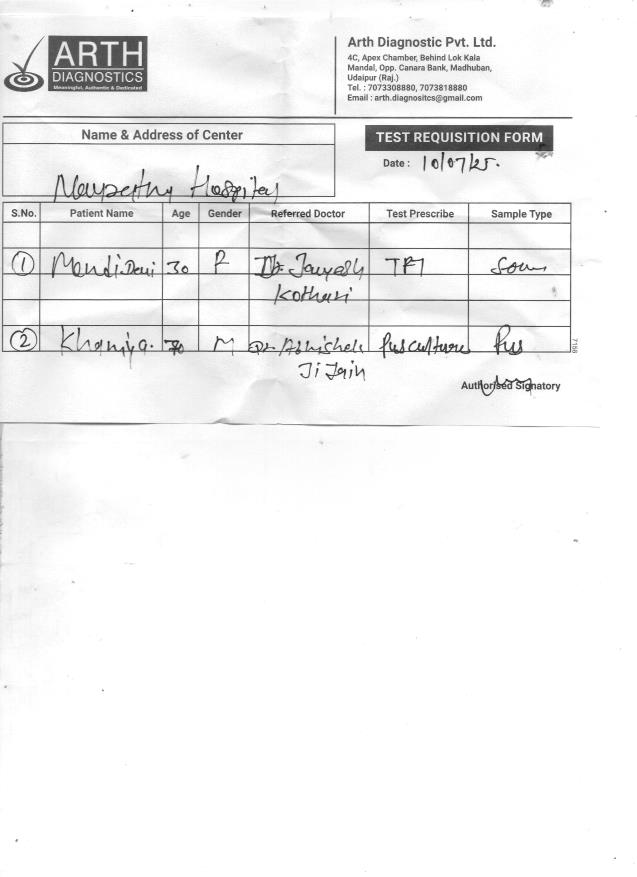 ARTH
DIAGNOSTICS
Meaningful, Authentic & Dedicated
Arth Diagnostic Pvt. Ltd.
4C, Apex Chamber, Behind Lok Kala
Mandal, Opp. Canara Bank, Madhuban,
Udaipur (Raj.)
Tel. : 7073308880, 7073818880
Email : arth.diagnositcs@gmail.com
Name & Address of Center
TEST REQUISITION FORM
Date : 10/07/25.
Hospital
S.No. Patient Name Age Gender Referred Doctor Test Prescribe Sample Type
1 Devi 30 F Dr. Jayesh
Kothari
2 Khaniya. 70 M Dr. Abhishek Pus culture Pus
Ji Jain
7158
Authorised Signatory